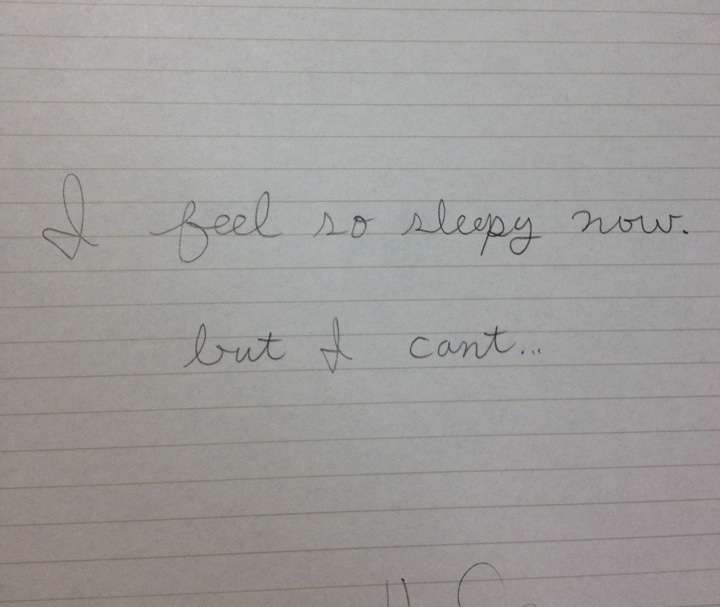 I feel so sleepy now.
but I cant...